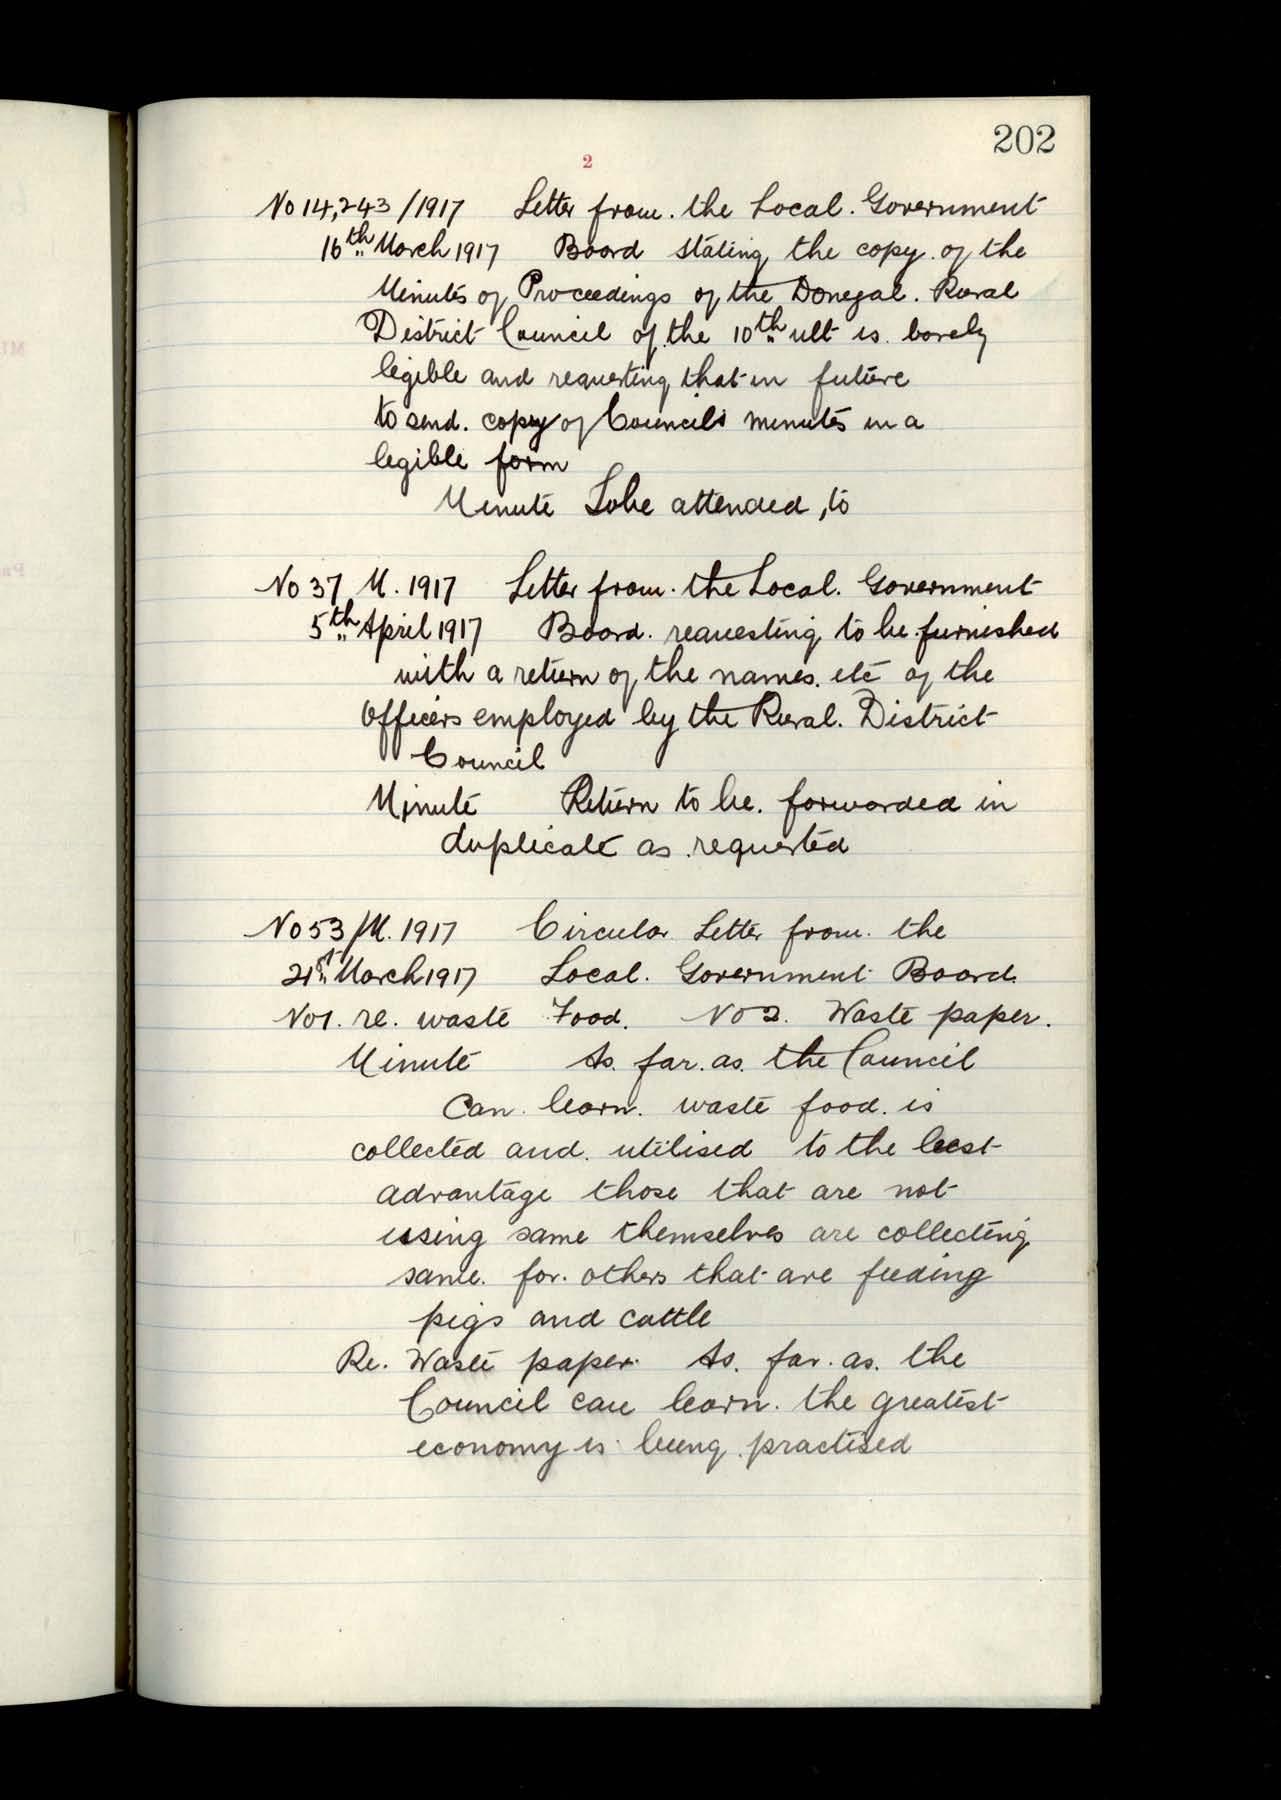 202
2
No 14,243/1917 Letter from. the Local. Government
16th March 1917 Board stating the copy of the
Minutes of Proceedings of the Donegal. Rural
District Council of the 10th ult is barely
legible and requesting that in future
to send. copy of Councils minutes in a
legible form
Minute To be attended, to
No 37 M. 1917 Letter from. the Local. Government
5th April 1917 Board. requesting to be furnished
with a return of the names. etc of the
Officers employed by the Rural. District
Council
Minute Return to be. forwarded in
duplicate as requested
No 53/M. 1917 Circular Letter from. the
21st March 1917 Local. Government Board.
No 1. re. waste Food. No 2. Waste paper.
Minute As. far. as. the Council
Can. learn. waste food. is
collected and. utilised to the best
advantage those that are not
using same themselves are collecting
same. for. others that are feeding
pigs and cattle
Re. Waste paper. As. far. as. the
Council can learn. the greatest
economy is being practised